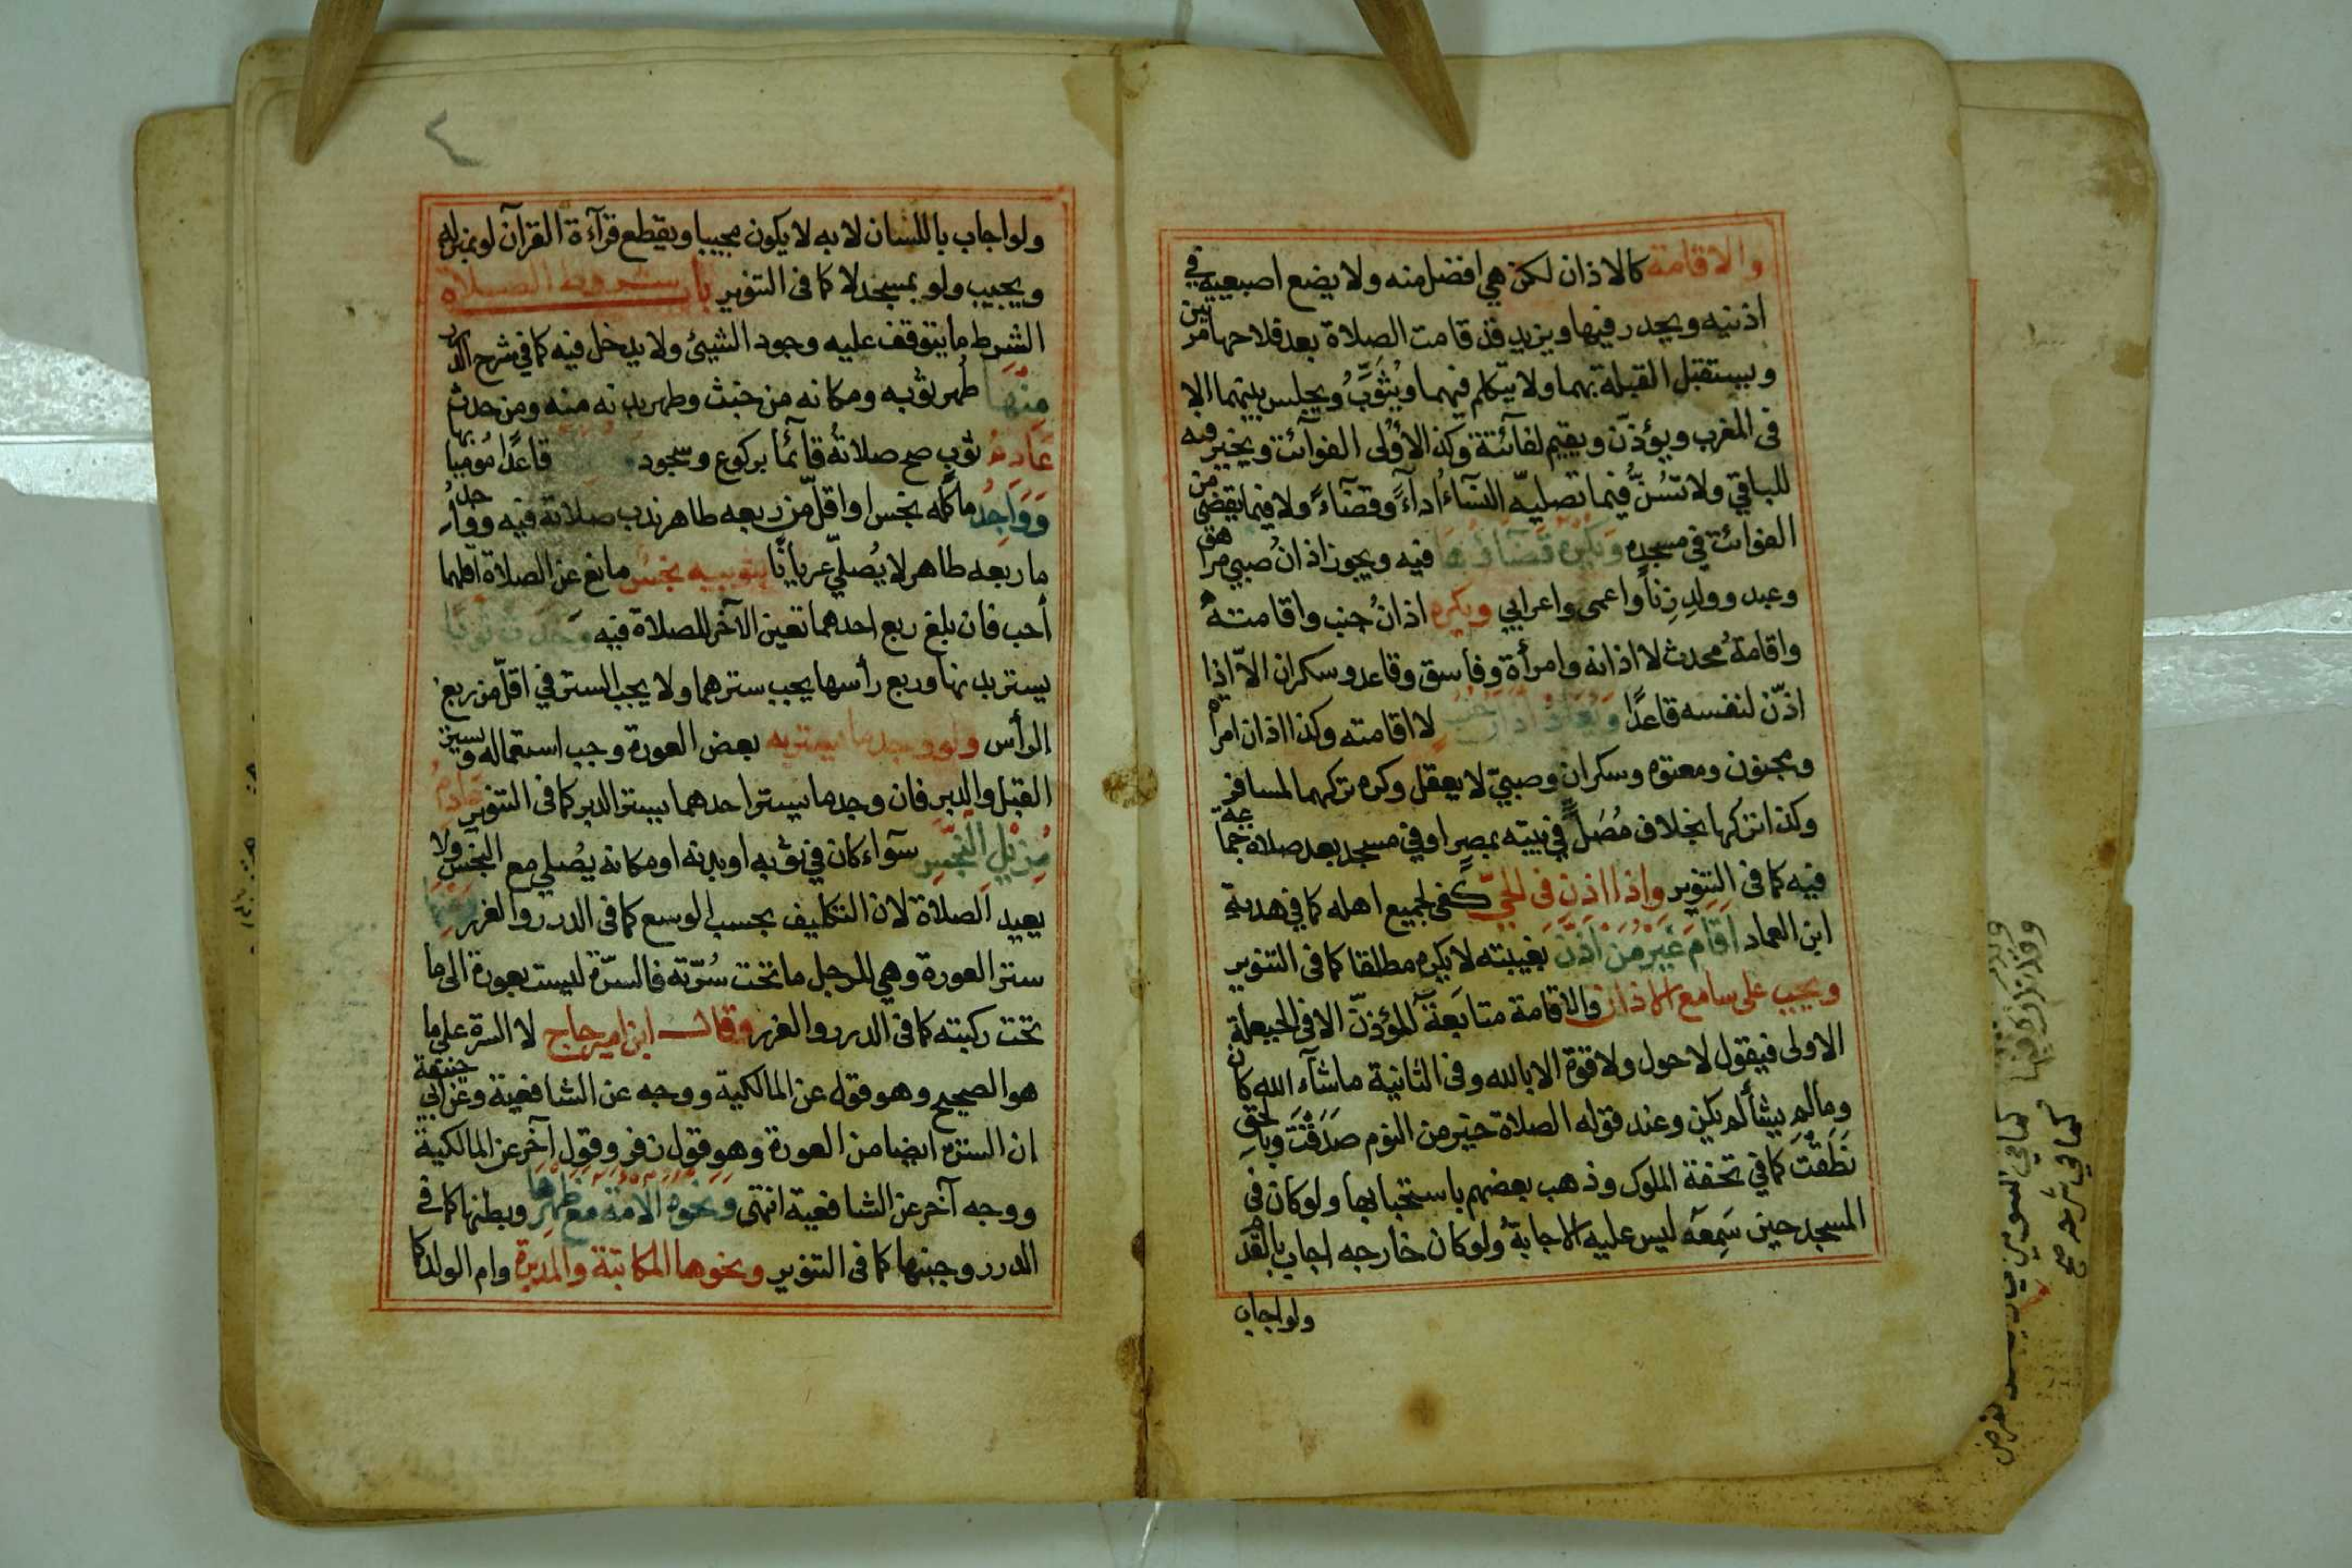 والاقامة كالاذان لكن هي افضل منه ولا يضع اصبعيه في
اذنيه ويحدر فيها ويزيد قد قامت الصلاة بعد فلاحها مرتين
ويستقبل القبلة بهما ولا يتكلم فيهما ويُثَوِّبُ ويجلس بينهما الا
فى المغرب ويؤذّن ويقيم لفائتة وكذا الأُوْلى الفوآئت ويخير فيه
للباقي ولا تسُنُّ فيما تصليه النسآءُ ادآءً وقضآءً ولا فيما يقضى من
الفوائت في مسجده ويكره قضآؤها فيه ويجوز اذانُ صبي مراهق
وعبد وولدِ زِناً واعمى واعرابي ويكره اذانُ جنب واقامتهُ
واقامةُ محدث لا اذانه وامرأة وفاسق وقاعد وسكران الاّ اذا
اذّن لنفسه قاعدًا ويُعادُ اذان جنبٍ لا اقامته وكذا اذان امرأة
ومجنون ومعتوه وسكران وصبيّ لا يعقل وكره تركهما لمسافر
وكذا تركها بخلاف مُصَلٍّ في بيته بمصر او في مسجد بعد صلاة جماعة
فيه كما فى التنوير واذا اذن فى الحيّ كفى لجميع اهله كما في هدية
ابن العماد اقام غَيرُ من اَذّنَ بغيبته لا يكره مطلقا كما فى التنوير
ويجب على سامع الاذان والاقامة متابَعَةٌ للمؤذنّ الا فى الحيعلة
الاولى فيقول لا حول ولا قوة الا بالله وفى الثانية ما شآء الله كان
وما لم يشأ لم يكن وعند قوله الصلاة خير من النوم صَدَقْتَ وبالحق
نَطَقْتَ كما في تحفة الملوك وذهب بعضهم باستحبابها ولو كان فى
المسجد حين سَمِعَه ليس عليه الاجابةُ ولو كان خارجه اجاب بالقدم
ولو اجاب
ولو اجاب باللسان لا به لا يكون مجيبا ويقطع قرآءة القرآن لو بمنزله
ويجيب ولو بمسجد لا كما فى التنوير باب شروط الصلاة
الشرط ما يتوقف عليه وجود الشيئ ولا يدخل فيه كما في شرح الدرر
منها طهر ثوبه ومكانه من خبث وطهر بدنه منه ومن حدث
عَادِمُ ثوبٍ صح صلاتهُ قآئمًا بركوع وسجود قاعدًا مُوميا بها
وَوَاجِدُ ما كله نجس او اقلّ من ربعه طاهر ندب صلاته فيه وواجدُ
ما ربعه طاهر لا يُصلّي عريانًا بثوبيه نجس مانع عن الصلاة اقلهما
أحب فان بلغ ربع احدهما تعين الآخر للصلاة فيه وجدت ثوبًا
يستر بدنها وربع رأسها يجب سترهما ولا يجب الستر في اقلّ من ربع
الرأس ولو وجد ما يستر به بعض العورة وجب استعماله ويستر
القبل والدبر فان وجد ما يستر احدهما يستر الدبر كما فى التنوير عادِمُ
مُزيل النجس سوآء كان في ثوبه او بدنه او مكانه يُصلي مع النجس ولا
يعيد الصلاة لان التكليف بحسب الوسع كما فى الدرر والغرر ومنها
ستر العورة وهي للرجل ما تحت سُرّته فالسرّة ليست بعورة الى ما
تحت ركبته كما فى الدرر والغرر وقال ابن امير حاج لا السرة على ما
هو الصحيح وهو قول عن المالكية ووجه عن الشافعية وعن ابي حنيفة
ان السترة ايضا من العورة وهو قول زفر وقول آخر عن المالكية
ووجه آخر عن الشافعية انتهى ونحوه الامة مع ظهرها وبطنها كما فى
الدرر وجبنها كما فى التنوير ونحوها المكاتبة والمدبرة وام الولد كما